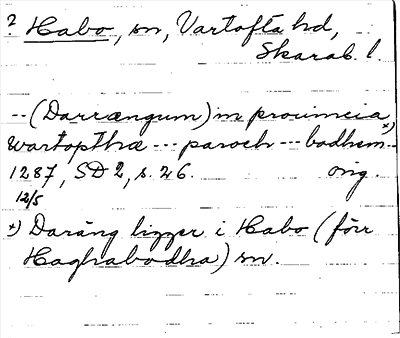 ? Habo, sn, Vartofta hd,
Skarab. l.
-- (Darrængum) in prouincia
wartopthæ --- paroch --- bodhem x)--
1287, SD 2, s. 26. orig.
12/5
x) Daräng ligger i Habo (förr
Haghabodha) sn.